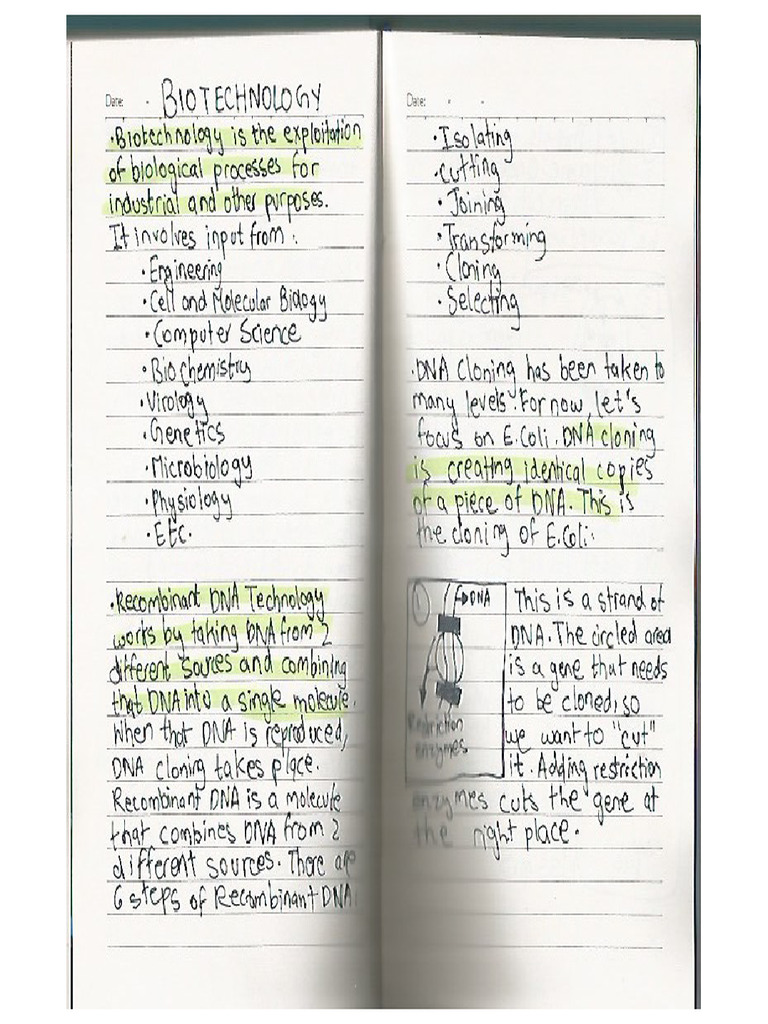 Date: BIOTECHNOLOGY
•Biotechnology is the exploitation
of biological processes for
industrial and other purposes.
It involves input from:
•Engineering
•Cell and Molecular Biology
•Computer Science
•Biochemistry
•Virology
•Genetics
•Microbiology
•Physiology
•Etc.
•Recombinant DNA Technology
works by taking DNA from 2
different sources and combining
that DNA into a single molecule.
When that DNA is reproduced,
DNA cloning takes place.
Recombinant DNA is a molecule
that combines DNA from 2
different sources. There are
6 steps of Recombinant DNA
Date:
•Isolating
•Cutting
•Joining
•Transforming
•Cloning
•Selecting
•DNA Cloning has been taken to
many levels. For now, let's
focus on E.Coli. DNA cloning
is creating identical copies
of a piece of DNA. This is
the cloning of E.Coli:
1 →DNA
Restriction
enzymes
This is a strand of
DNA. The circled area
is a gene that needs
to be cloned, so
we want to "cut"
it. Adding restriction
enzymes cuts the gene at
the right place.